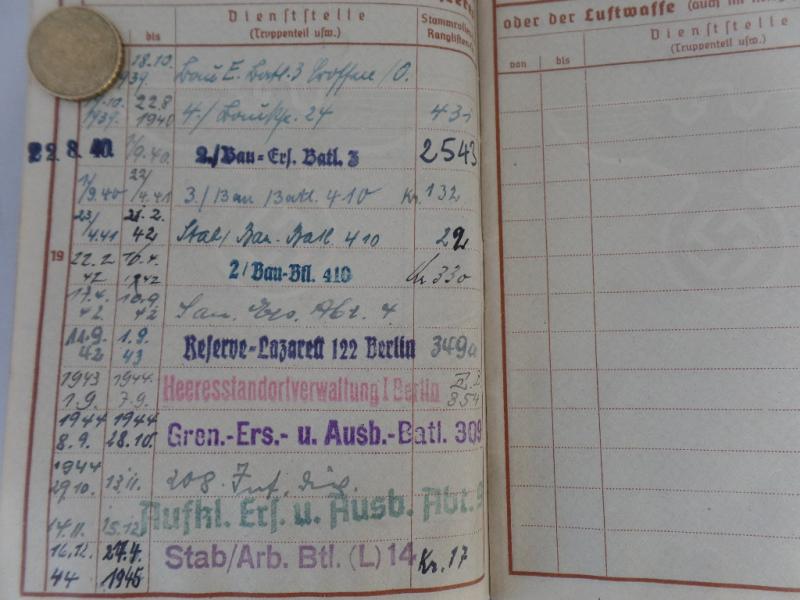 bis
Dienststelle
(Truppenteil usw.)
Stammrollen
Ranglisten
18.10.
1939.
Bau E. Batl. 3 Crossen /O.
1/10. 1939. 22.8 1940 4./ Baukp. 24 43
22.8.40 1/9.40. 2./Bau-Ers. Batl. 3 2543
1/9.40 22/4.41 3./Bau Batl. 410 Kr. 132
23/4.41 21.2.42 Stab/ Bau-Batl. 410 22
19 22.2.42 16.4.1942 2/Bau-Btl. 410 Kr 330
17.4.42 10.9.42 San. Ers. Abt. 4
11.9.42 1.9.43 Reserve-Lazarett 122 Berlin 349a
1943 1.9. 1944. 7.9. Heeresstandortverwaltung I Berlin 854
1944 8.9. 1944 28.10. Gren.-Ers.- u. Ausb.-Batl. 309
1944 29.10. 13.11. 208. Inf. div.
14.11. 15.12 Aufkl. Ers. u. Ausb. Abt. 9
16.12. 44 27.4. 1945 Stab/Arb. Btl. (L) 14 Kr. 17
oder der Luftwaffe (auch im
Dienststelle
(Truppenteil usw.)
von
bis